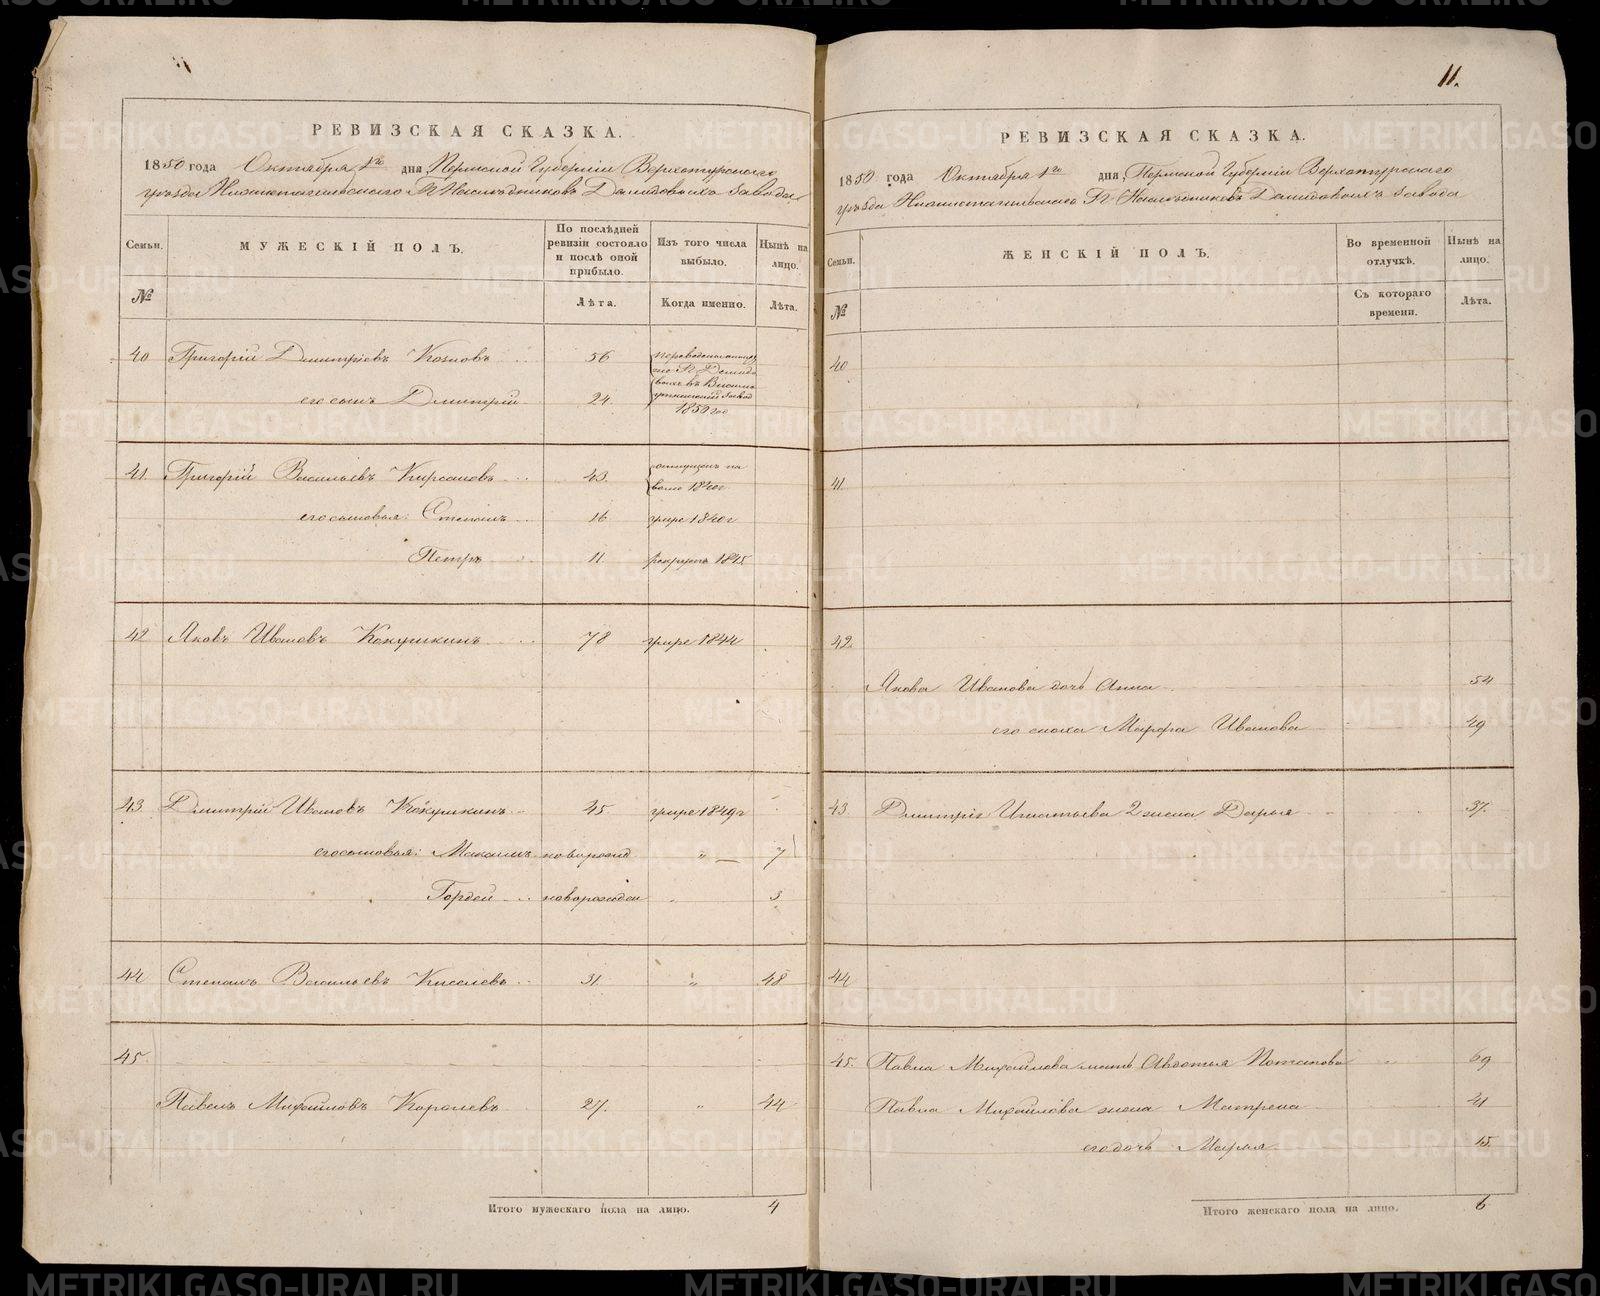 11.
РЕВИЗСКАЯ СКАЗКА.
1850 года Октября 1го дня Пермской Губерніи Верхотурскаго
уѣзда Нижнетагильскаго Гг Наслѣдниковъ Демидовыхъ Завода
Семьи. МУЖЕСКІЙ ПОЛЪ. По послѣдней ревизіи состояло и послѣ оной прибыло. Изъ того числа выбыло. Нынѣ на лицо.
№ Лѣта. Когда именно. Лѣта.
40 Григорій Дмитріевъ Козловъ 56
его сынъ Дмитрій 24. 1850 год
41. Григорій Васильевъ Кирсановъ 43. отпущенъ на волю 1840г
его сыновья: Степанъ 16 умре 1840г
Петръ 11. рекрутъ 1845
42 Яковъ Ивановъ Кокушкинъ 78 умре 1844
43. Дмитрій Ивановъ Кокушкинъ 45. умре 1849г
его сыновья: Максимъ новорожд " — 7
Гордей новорожден " 3
44 Степанъ Васильевъ Киселевъ 31. " 48
45.
Павелъ Михайловъ Королевъ 27. " 44
Итого мужескаго пола на лицо. 4
РЕВИЗСКАЯ СКАЗКА.
1850 года Октября 1го дня Пермской Губерніи Верхотурскаго
уѣзда Нижнетагильскаго Гг Наслѣдниковъ Демидовыхъ Завода
Семьи. ЖЕНСКІЙ ПОЛЪ. Во временной отлучкѣ. Нынѣ на лицо.
№ Съ котораго времени. Лѣта.
40
41.
42.
Якова Иванова дочь Анна 54
его сноха Марфа Иванова 49
43 Дмитрія Игнатьева 2 жена Дарья 37.
44
45. Павла Михайлова мать Авдотья Потапова " 69
Павла Михайлова жена Матрена 41
его дочь Марья 15.
Итого женскаго пола на лицо. 6
METRIKI.GASO-URAL.RU